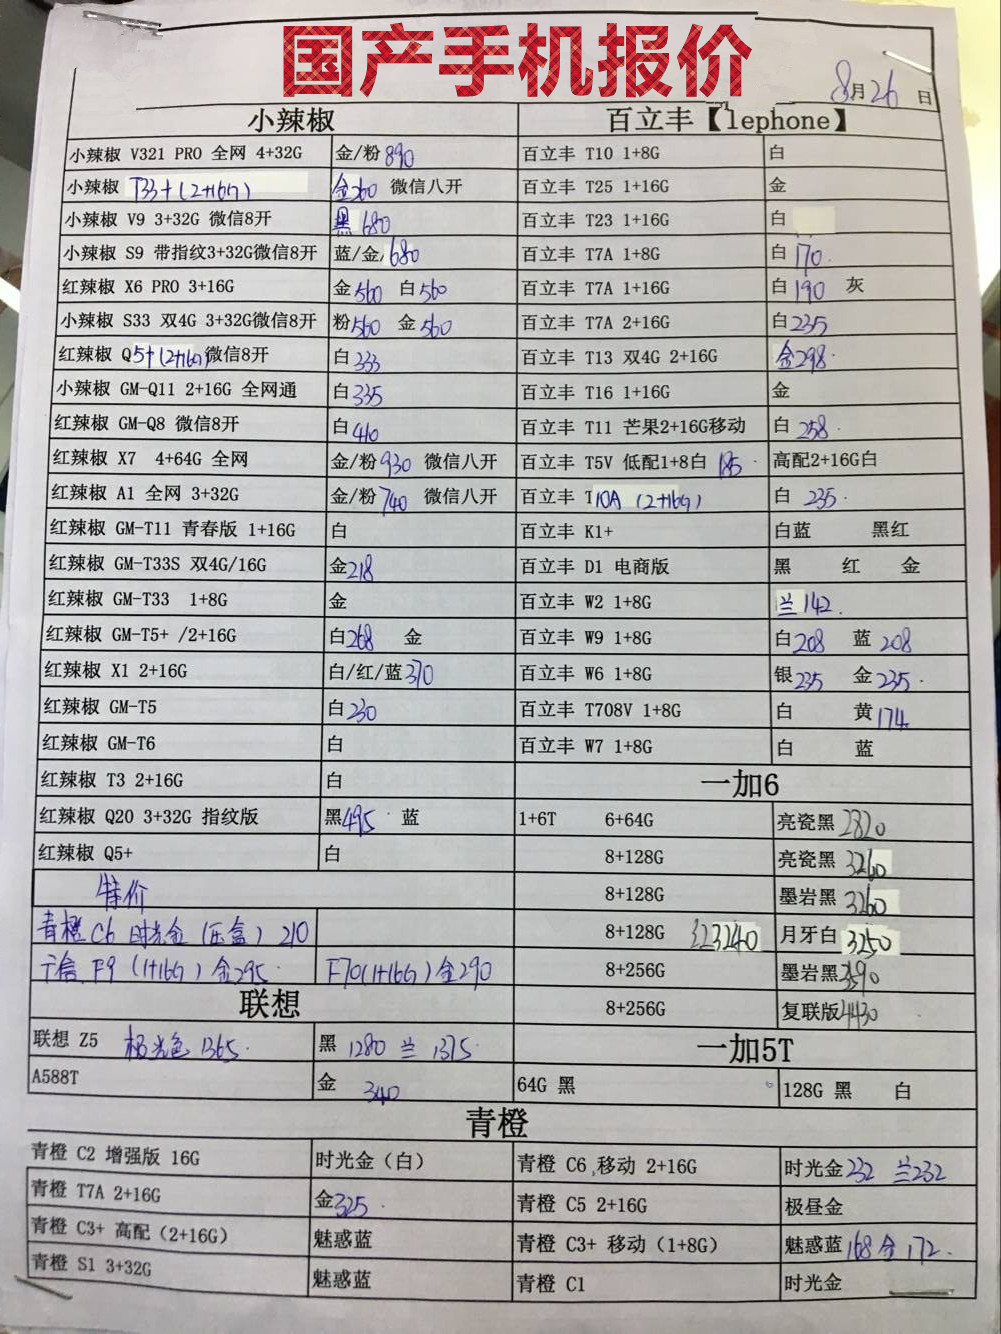 国产手机报价
8月26日
小辣椒 百立丰【lephone】
小辣椒 V321 PRO 全网 4+32G 金/粉890 百立丰 T10 1+8G 白
小辣椒 T33+(2+16G) 金260 微信八开 百立丰 T25 1+16G 金
小辣椒 V9 3+32G 微信8开 黑680 百立丰 T23 1+16G 白
小辣椒 S9 带指纹3+32G微信8开 蓝/金680 百立丰 T7A 1+8G 白170
红辣椒 X6 PRO 3+16G 金560 白560 百立丰 T7A 1+16G 白190 灰
小辣椒 S33 双4G 3+32G微信8开 粉560 金560 百立丰 T7A 2+16G 白235
红辣椒 Q5+(2+16G)微信8开 白333 百立丰 T13 双4G 2+16G 金298
小辣椒 GM-Q11 2+16G 全网通 白335 百立丰 T16 1+16G 金
红辣椒 GM-Q8 微信8开 白410 百立丰 T11 芒果2+16G移动 白258
红辣椒 X7 4+64G 全网 金/粉930 微信八开 百立丰 T5V 低配1+8白 185 高配2+16G白
红辣椒 A1 全网 3+32G 金/粉740 微信八开 百立丰 T10A (2+16G) 白 235
红辣椒 GM-T11 青春版 1+16G 白 百立丰 K1+ 白蓝 黑红
红辣椒 GM-T33S 双4G/16G 金218 百立丰 D1 电商版 黑 红 金
红辣椒 GM-T33 1+8G 金 百立丰 W2 1+8G 兰142
红辣椒 GM-T5+ /2+16G 白268 金 百立丰 W9 1+8G 白208 蓝208
红辣椒 X1 2+16G 白/红/蓝370 百立丰 W6 1+8G 银235 金235
红辣椒 GM-T5 白230 百立丰 T708V 1+8G 白 黄174
红辣椒 GM-T6 白 百立丰 W7 1+8G 白 蓝
红辣椒 T3 2+16G 白 一加6
红辣椒 Q20 3+32G 指纹版 黑495 蓝 1+6T 6+64G 亮瓷黑2820
红辣椒 Q5+ 白 8+128G 亮瓷黑 3260
特价 8+128G 墨岩黑 3260
青橙 C6 时光金 (压盒) 210 8+128G 3240 月牙白 3250
F9 (1+16G) 金295 F70(1+16G)金290 8+256G 墨岩黑
联想 8+256G 复联版4430
联想 Z5 极光色 1365 黑 1280 兰 1375 一加5T
A588T 金 340 64G 黑 128G 黑 白
青橙
青橙 C2 增强版 16G 时光金（白） 青橙 C6 移动 2+16G 时光金232 兰232
青橙 T7A 2+16G 金325 青橙 C5 2+16G 极昼金
青橙 C3+ 高配（2+16G） 魅惑蓝 青橙 C3+ 移动（1+8G） 魅惑蓝168 金172
青橙 S1 3+32G 魅惑蓝 青橙 C1 时光金